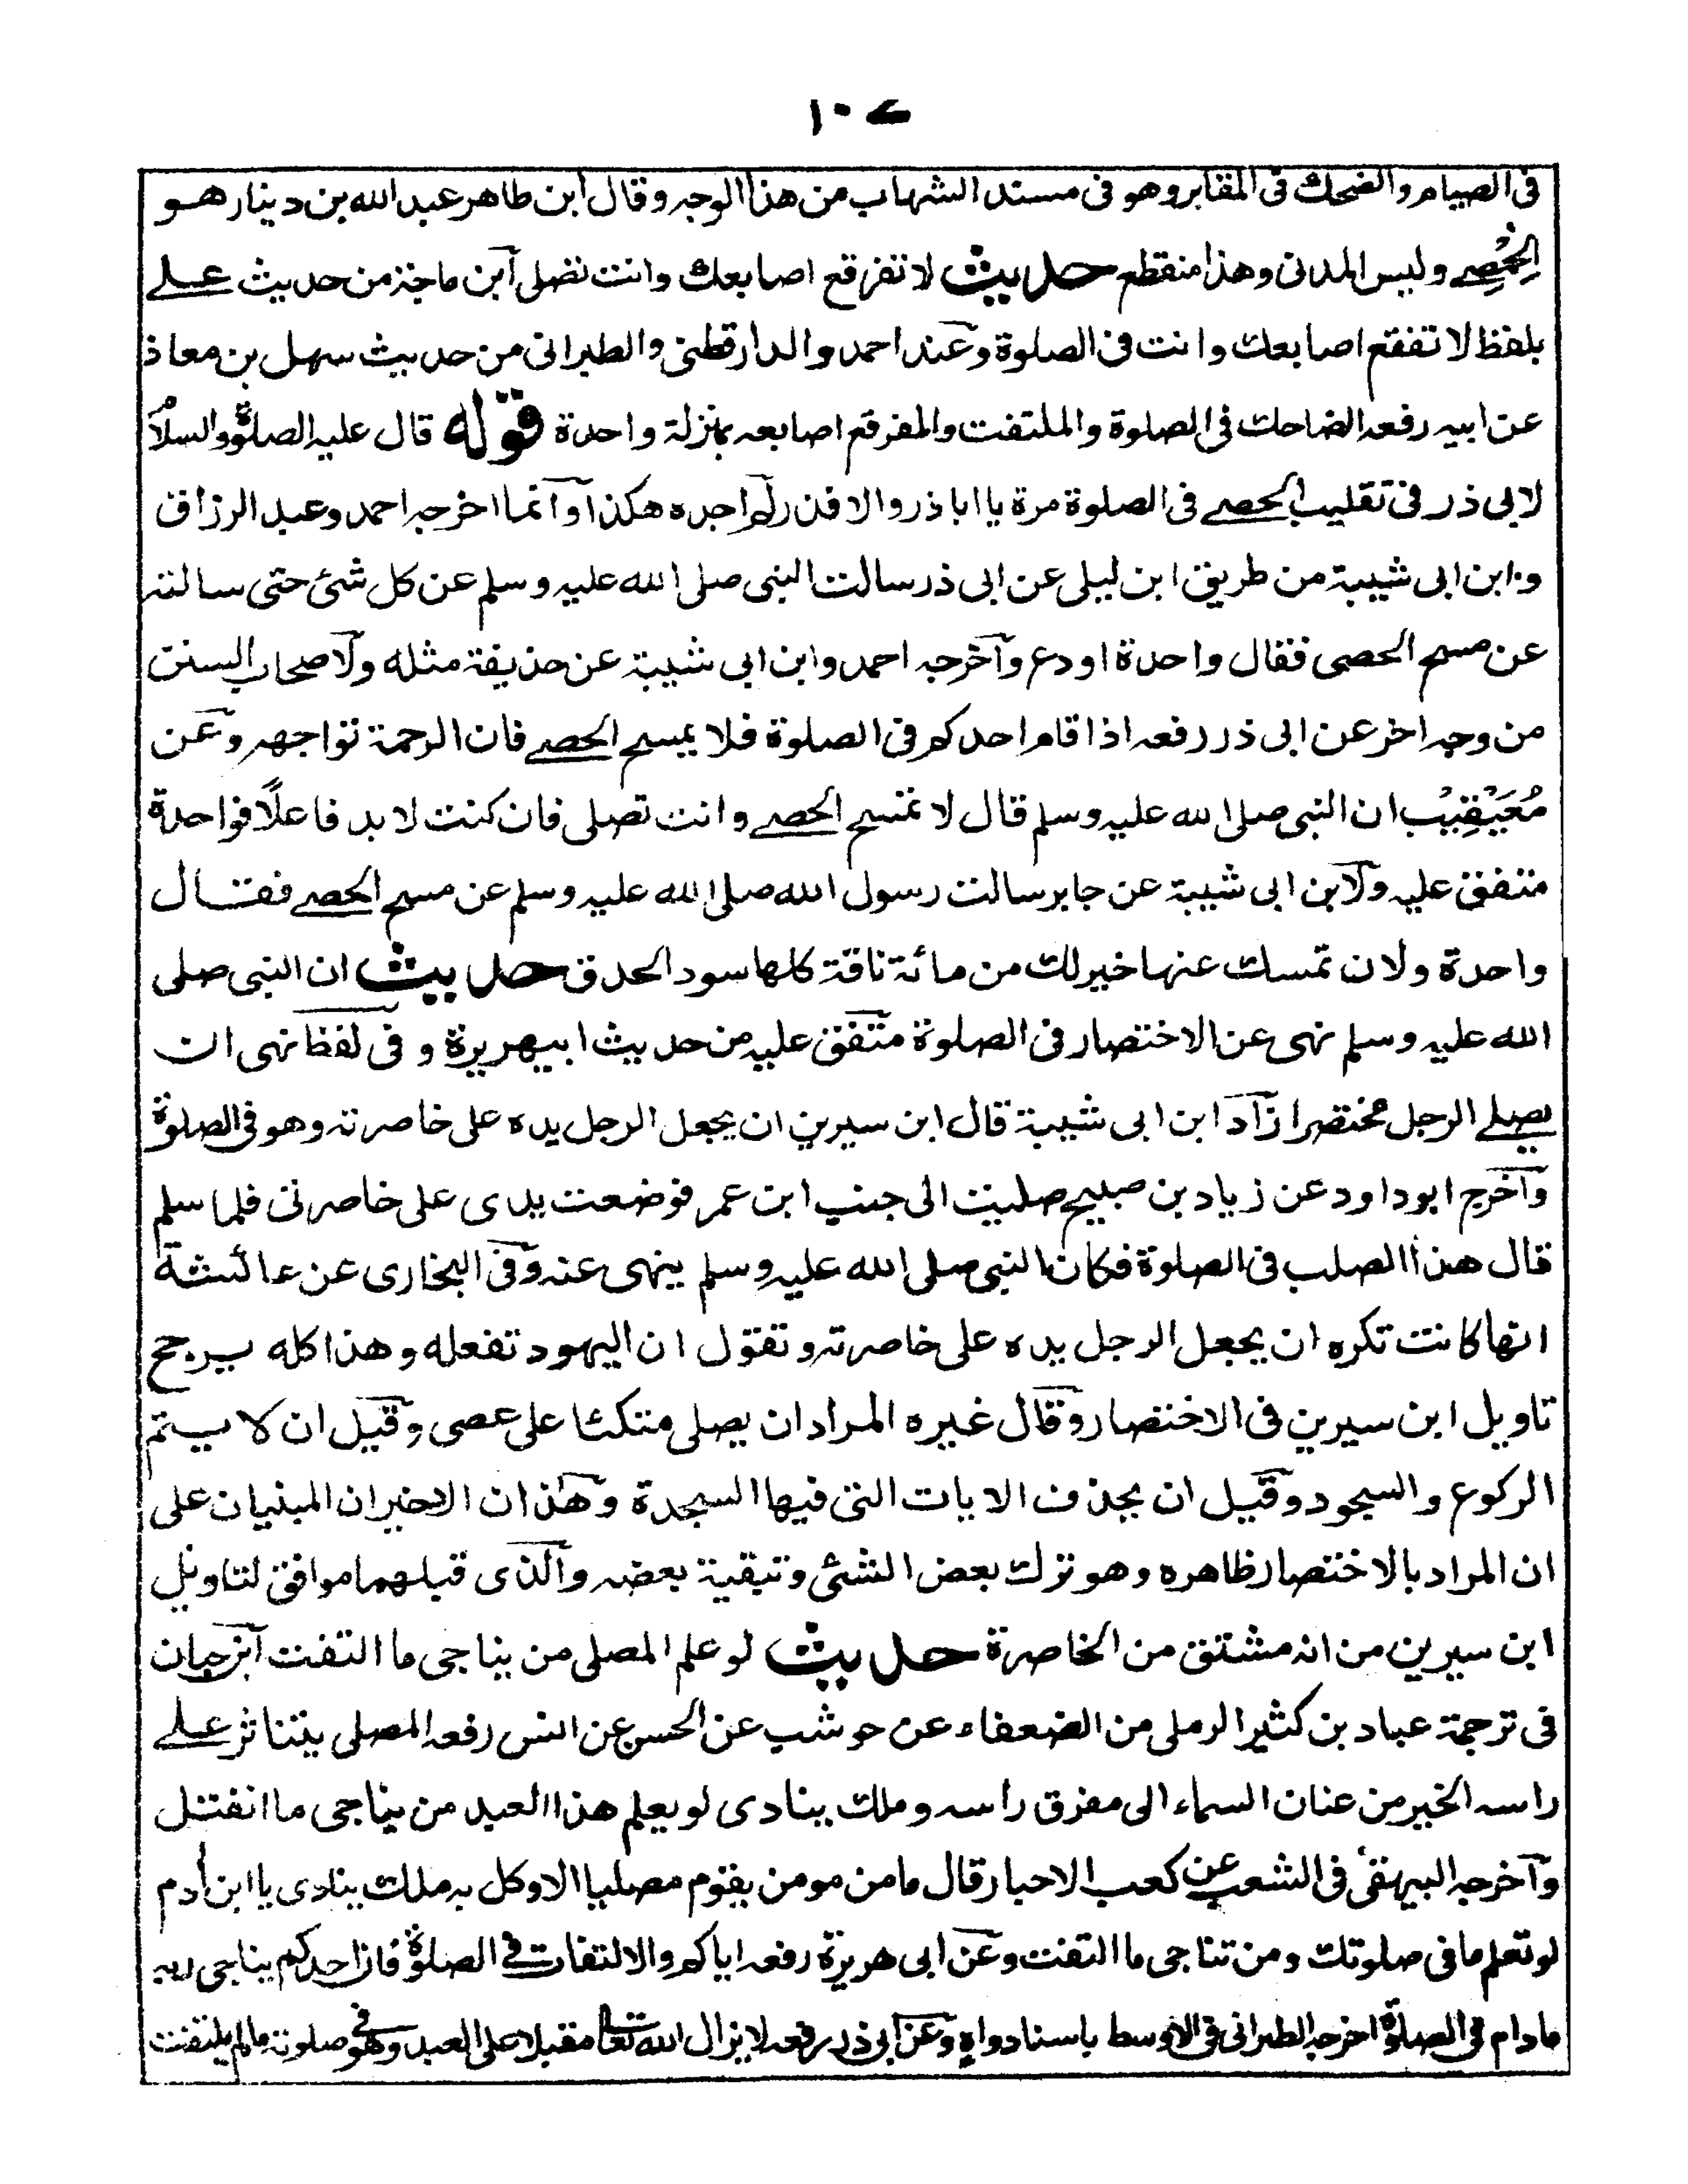 ١٠٧
فى الصيام والضحك فى المقابر وهو فى مسند الشهاب من هذا الوجه وقال ابن طاهر عبد الله بن دينار هو
الحِمْصِے وليس المدنى وهذا منقطع حديث لا تفرقع اصابعك وانت تصلى ابن ماجة من حديث علے
بلفظ لا تفقع اصابعك وانت فى الصلوة وعند احمد والدارقطنى والطبرانى من حديث سهل بن معاذ
عن ابيه رفعه الضاحك فى الصلوة والملتفت والمفرقع اصابعه بمنزلة واحدة قوله قال عليه الصلوة والسلام
لابى ذر فى تقليب الحصے فى الصلوة مرة يا اباذر والا فذر لم اجده هكذا وانما اخرجه احمد وعبد الرزاق
وابن ابى شيبة من طريق ابن ليلى عن ابى ذر سالت النبى صلى الله عليه وسلم عن كل شئ حتى سالته
عن مسح الحصى فقال واحدة او دع وآخرجه احمد وابن ابى شيبة عن حذيفة مثله ولاصحاب السنن
من وجه اخر عن ابى ذر رفعه اذا قام احدكم فى الصلوة فلا يمسح الحصے فان الرحمة تواجهه وعن
مُعَيْقِيْب ان النبى صلى الله عليه وسلم قال لا تمسح الحصے وانت تصلى فان كنت لا بد فاعلًا فواحدة
متفق عليه ولابن ابى شيبة عن جابر سالت رسول الله صلى الله عليه وسلم عن مسح الحصے فقال
واحدة ولان تمسك عنها خير لك من مائة ناقة كلها سود الحدق حديث ان النبى صلى
الله عليه وسلم نهى عن الاختصار فى الصلوة متفق عليه من حديث ابيهريرة وفى لفظ نهى ان
يصلے الرجل مختصرا زاد ابن ابى شيبة قال ابن سيرين ان يجعل الرجل يده على خاصرته وهو فى الصلوة
وآخرج ابوداود عن زياد بن صبيح صليت الى جنب ابن عمر فوضعت يدى على خاصرتى فلما سلم
قال هذا الصلب فى الصلوة فكان النبى صلى الله عليه وسلم ينهى عنه وفى البخارى عن عائشة
انها كانت تكره ان يجعل الرجل يده على خاصرته وتقول ان اليهود تفعله وهذا كله يرجح
تاويل ابن سيرين فى الاختصار وقال غيره المراد ان يصلى متكئا على عصى وقيل ان لا يتم
الركوع والسجود وقيل ان يحذف الايات التى فيها السجدة وهذان الاخيران المبنيان على
ان المراد بالاختصار ظاهره وهو ترك بعض الشئ وتبقية بعضه والذى قبلهما موافق لتاويل
ابن سيرين من انه مشتق من الخاصرة حديث لو علم المصلى من يناجى ما التفت ابن حبان
فى ترجمة عباد بن كثير الرملى من الضعفاء عن حوشب عن الحسن عن انس رفعه المصلى يتناثر علے
راسه الخير من عنان السماء الى مفرق راسه وملك ينادى لو يعلم هذا العبد من يناجى ما انفتل
وآخرجه البيهقى فى الشعب عن كعب الاحبار قال ما من مومن يقوم مصليا الا وكل به ملك ينادى يا ابن أدم
لو تعلم ما فى صلوتك ومن تناجى ما التفت وعن ابى هريرة رفعه اياكم والالتفات فے الصلوة فان احدكم يناجى ربه
مادام فى الصلوة اخرجه الطبرانى فى الاوسط باسناد واهٍ وعن ابى ذر رفعه لا يزال الله تعالى مقبلا على العبد وهو فے صلوته ما لم يلتفت